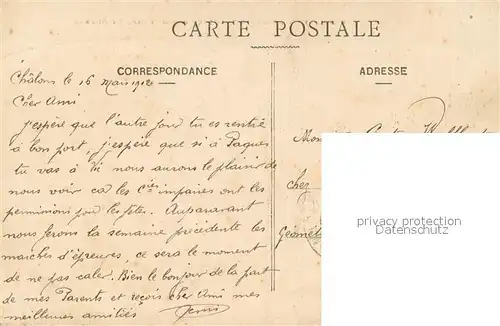 CARTE POSTALE
CORRESPONDANCE
ADRESSE
Châlons le 16 Mars 1912
Cher Ami
j'espère que l'autre jour tu es rentré
à bon port, j'espère que si à Paques
tu vas à nous aurons le plaisir de
nous voir car les Cies impaires ont les
permissions pour les fêtes. Auparavant
nous ferons la semaine précédente les
marches d'épreuves, ce sera le moment
de ne pas caler. Bien le bonjour de la part
de mes Parents et reçois cher Ami mes
meilleures amitiés
chez
privacy protection
for our customers